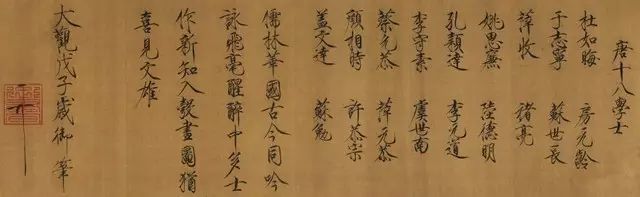 唐十八學士
杜如晦 房元齡
于志寧 蘇世長
薛收 褚亮
姚思廉 陸德明
孔穎達 李元道
李守素 虞世南
蔡允恭 薛元敬
顏相時 許敬宗
蓋文達 蘇勗
儒林華國古今同吟
詠飛毫醒醉中多士
作新知入彀畫圖猶
喜見文雄
大觀戊子歲御筆